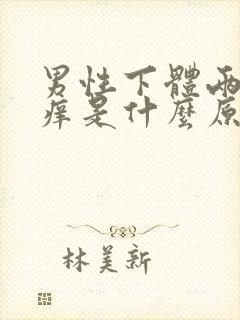 男性下體兩
痒是什麼原
林美新